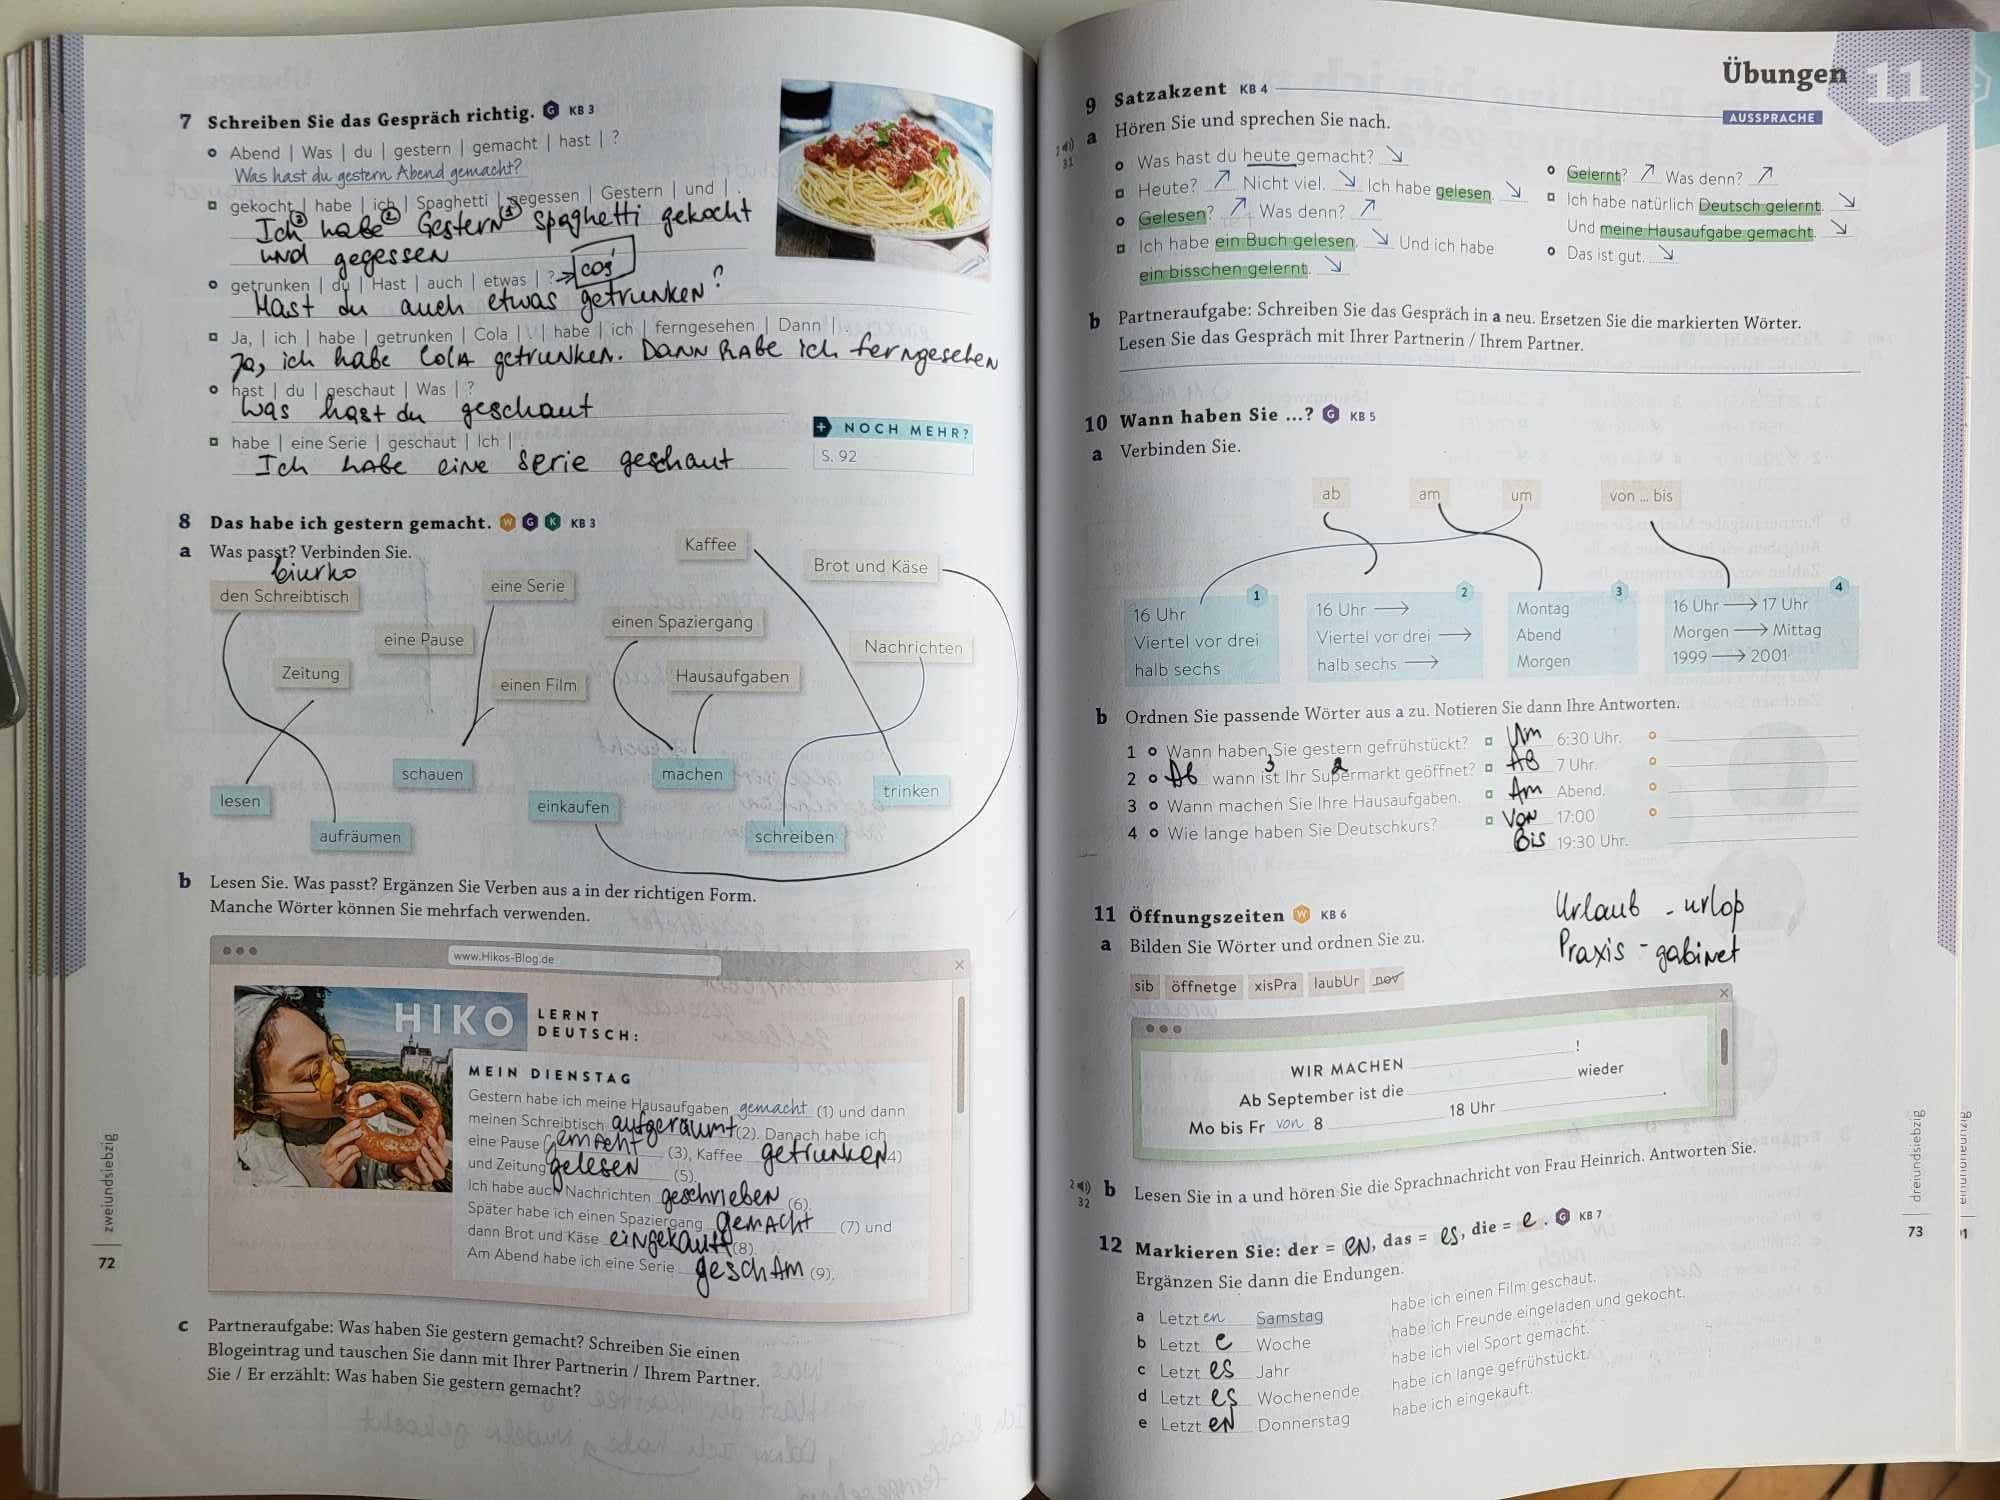 7 Schreiben Sie das Gespräch richtig. G KB 3
Abend | Was | du | gestern | gemacht | hast | ?
Was hast du gestern Abend gemacht?
gekocht | habe | ich | Spaghetti | gegessen | Gestern | und | .
Ich habe Gestern spaghetti gekocht
und gegessen
getrunken | du | Hast | auch | etwas | ? coś
Hast du auch etwas getrunken?
Ja, | ich | habe | getrunken | Cola | . | habe | ich | ferngesehen | Dann | .
Ja, ich habe COLA getrunken. DANN habe ich ferngesehen
hast | du | geschaut | Was | ?
Was hast du geschaut
habe | eine Serie | geschaut | Ich |
Ich habe eine serie geschaut
+ NOCH MEHR?
S. 92
8 Das habe ich gestern gemacht. W G K KB 3
a Was passt? Verbinden Sie.
biurko
den Schreibtisch
eine Serie
Kaffee
Brot und Käse
eine Pause
einen Spaziergang
Nachrichten
Zeitung
einen Film
Hausaufgaben
schauen
machen
lesen
einkaufen
trinken
aufräumen
schreiben
b Lesen Sie. Was passt? Ergänzen Sie Verben aus a in der richtigen Form.
Manche Wörter können Sie mehrfach verwenden.
www.Hikos-Blog.de
HIKO LERNT
DEUTSCH:
MEIN DIENSTAG
Gestern habe ich meine Hausaufgaben gemacht (1) und dann
meinen Schreibtisch aufgeräumt (2). Danach habe ich
eine Pause gemacht (3), Kaffee getrunken 4)
und Zeitung gelesen (5).
Ich habe auch Nachrichten geschrieben (6).
Später habe ich einen Spaziergang gemacht (7) und
dann Brot und Käse eingekauft (8).
Am Abend habe ich eine Serie (9).
c Partneraufgabe: Was haben Sie gestern gemacht? Schreiben Sie einen
Blogeintrag und tauschen Sie dann mit Ihrer Partnerin / Ihrem Partner.
Sie / Er erzählt: Was haben Sie gestern gemacht?
zweiundsiebzig
72
Übungen 11
AUSSPRACHE
9 Satzakzent KB 4
a Hören Sie und sprechen Sie nach.
2 31
Was hast du heute gemacht? ↘
Heute? ↗ Nicht viel. ↘ Ich habe gelesen. ↘
Gelesen? ↗ Was denn? ↗
Ich habe ein Buch gelesen. ↘ Und ich habe
ein bisschen gelernt. ↘
Gelernt? ↗ Was denn? ↗
Ich habe natürlich Deutsch gelernt. ↘
Und meine Hausaufgabe gemacht. ↘
Das ist gut. ↘
b Partneraufgabe: Schreiben Sie das Gespräch in a neu. Ersetzen Sie die markierten Wörter.
Lesen Sie das Gespräch mit Ihrer Partnerin / Ihrem Partner.
10 Wann haben Sie ...? G KB 5
a Verbinden Sie.
ab am um von ... bis
1
16 Uhr
Viertel vor drei
halb sechs
2
16 Uhr →
Viertel vor drei →
halb sechs →
3
Montag
Abend
Morgen
4
16 Uhr → 17 Uhr
Morgen → Mittag
1999 → 2001
b Ordnen Sie passende Wörter aus a zu. Notieren Sie dann Ihre Antworten.
1 Wann haben Sie gestern gefrühstückt? Um 6:30 Uhr.
2 Ab wann ist Ihr Supermarkt geöffnet? AB 7 Uhr.
3 Wann machen Sie Ihre Hausaufgaben. Am Abend.
4 Wie lange haben Sie Deutschkurs? Von 17:00
Bis 19:30 Uhr.
Urlaub - urlop
Praxis - gabinet
11 Öffnungszeiten W KB 6
a Bilden Sie Wörter und ordnen Sie zu.
sib öffnetge xisPra laubUr nov
WIR MACHEN !
Ab September ist die wieder
Mo bis Fr von 8 18 Uhr .
2 32
b Lesen Sie in a und hören Sie die Sprachnachricht von Frau Heinrich. Antworten Sie.
12 Markieren Sie: der = en, das = es, die = e. G KB 7
Ergänzen Sie dann die Endungen.
a Letzt en Samstag habe ich einen Film geschaut.
b Letzt e Woche habe ich Freunde eingeladen und gekocht.
c Letzt es Jahr habe ich viel Sport gemacht.
d Letzt es Wochenende habe ich lange gefrühstückt.
e Letzt en Donnerstag habe ich eingekauft.
dreiundsiebzig
73